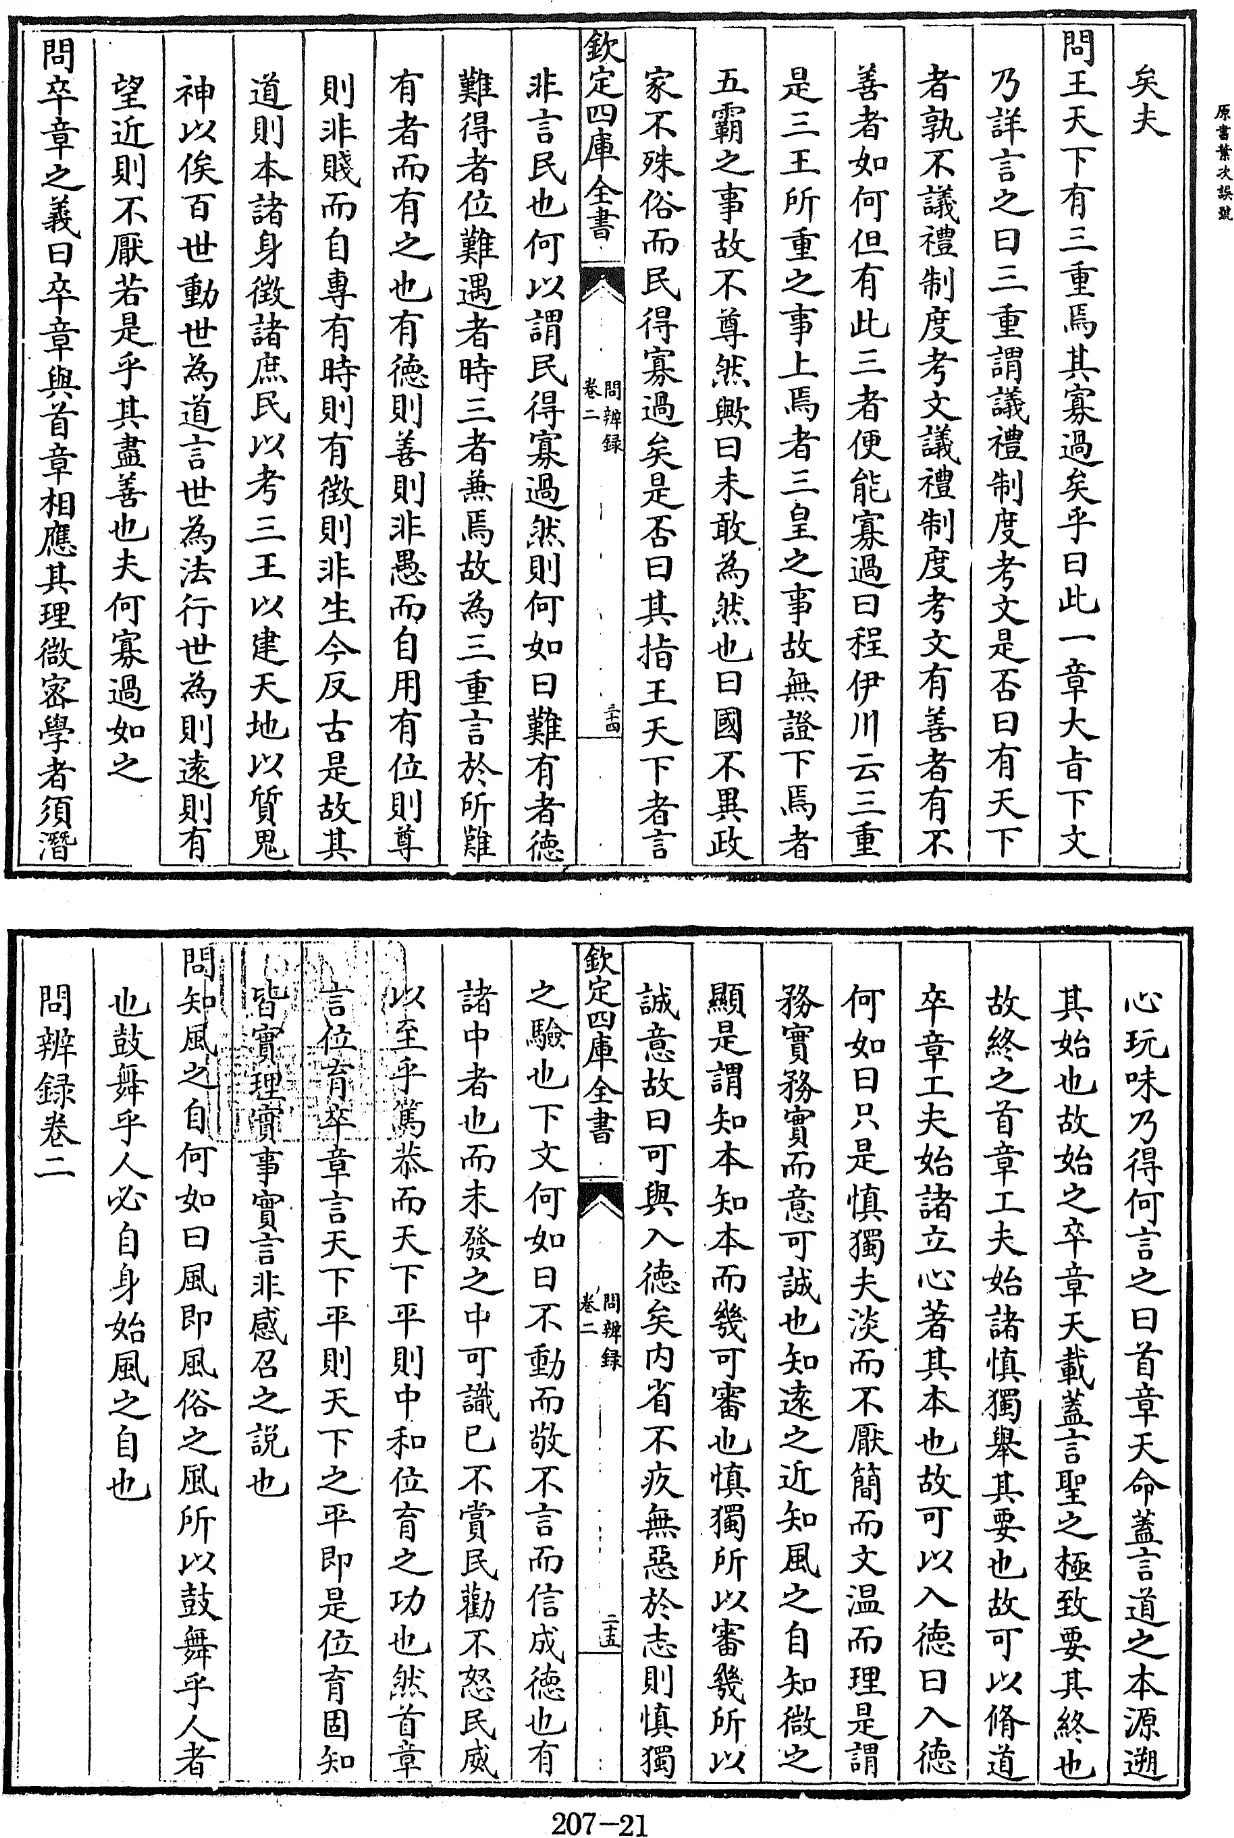 原書葉次誤號
矣夫
問王天下有三重焉其寡過矣乎曰此一章大㫖下文
乃詳言之曰三重謂議禮制度考文是否曰有天下
者孰不議禮制度考文議禮制度考文有善者有不
善者如何但有此三者便能寡過曰程伊川云三重
是三王所重之事上焉者三皇之事故無證下焉者
五霸之事故不尊然歟曰未敢為然也曰國不異政
家不殊俗而民得寡過矣是否曰其指王天下者言
欽定四庫全書
問辨録
卷二
二十四
非言民也何以謂民得寡過然則何如曰難有者徳
難得者位難遇者時三者兼焉故為三重言於所難
有者而有之也有徳則善則非愚而自用有位則尊
則非賤而自專有時則有徵則非生今反古是故其
道則本諸身徵諸庶民以考三王以建天地以質鬼
神以俟百世動世為道言世為法行世為則逺則有
望近則不厭若是乎其盡善也夫何寡過如之
問卒章之義曰卒章與首章相應其理微宻學者須潛
心玩味乃得何言之曰首章天命蓋言道之本源遡
其始也故始之卒章天載蓋言聖之極致要其終也
故終之首章工夫始諸慎獨舉其要也故可以脩道
卒章工夫始諸立心著其本也故可以入徳曰入徳
何如曰只是慎獨夫淡而不厭簡而文温而理是謂
務實務實而意可誠也知逺之近知風之自知微之
顯是謂知本知本而幾可審也慎獨所以審幾所以
誠意故曰可與入徳矣内省不疚無惡於志則慎獨
欽定四庫全書
問辨録
卷二
二十五
之驗也下文何如曰不動而敬不言而信成徳也有
諸中者也而未發之中可識已不賞民勸不怒民威
以至乎篤恭而天下平則中和位育之功也然首章
言位育卒章言天下平則天下之平即是位育固知
皆實理實事實言非感召之説也
問知風之自何如曰風即風俗之風所以鼓舞乎人者
也鼓舞乎人必自身始風之自也
問辨録卷二
207-21